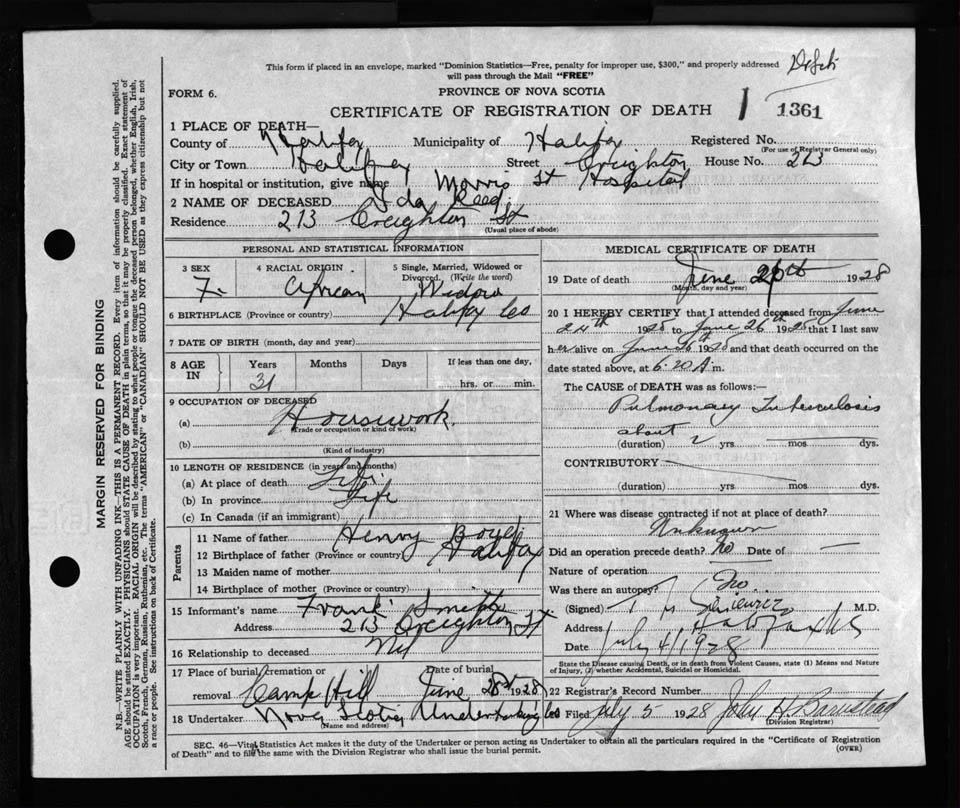 This form if placed in an envelope, marked "Dominion Statistics—Free, penalty for improper use, $300," and properly addressed
will pass through the Mail "FREE"
FORM 6.
PROVINCE OF NOVA SCOTIA
CERTIFICATE OF REGISTRATION OF DEATH
1361
1 PLACE OF DEATH—
County of Halifax Municipality of Halifax Registered No.
(For use of Registrar General only)
City or Town Halifax Street Creighton House No. 213
If in hospital or institution, give name Morris St Hospital
2 NAME OF DECEASED Ida Reed
Residence 213 Creighton St
(Usual place of abode)
PERSONAL AND STATISTICAL INFORMATION
3 SEX 4 RACIAL ORIGIN 5 Single, Married, Widowed or Divorced, (Write the word)
F. African Widow
6 BIRTHPLACE (Province or country) Halifax Co
7 DATE OF BIRTH (month, day and year)
8 AGE IN Years Months Days If less than one day,
31 hrs. or min.
9 OCCUPATION OF DECEASED
(a) Housework.
(Trade or occupation or kind of work)
(b)
(Kind of industry)
10 LENGTH OF RESIDENCE (in years and months)
(a) At place of death Life
(b) In province Life
(c) In Canada (if an immigrant)
Parents
11 Name of father Henry
12 Birthplace of father (Province or country) Halifax
13 Maiden name of mother
14 Birthplace of mother (Province or country)
15 Informant's name Frank Smith
Address 213 Creighton St.
16 Relationship to deceased Nil
17 Place of burial, cremation or removal Camp Hill Date of burial June 28th 1928
18 Undertaker Nova Scotia Undertaking Co
(Name and address)
MEDICAL CERTIFICATE OF DEATH
19 Date of death June 26th 1928
(Month, day and year)
20 I HEREBY CERTIFY that I attended deceased from June
24th 1928 to June 26th 1928 that I last saw
her alive on June 26 1928 and that death occurred on the
date stated above, at 6:20 A m.
The CAUSE of DEATH was as follows:—
Pulmonary Tuberculosis
about
(duration) 2 yrs. mos. dys.
CONTRIBUTORY
(duration) yrs. mos. dys.
21 Where was disease contracted if not at place of death?
Unknown
Did an operation precede death? No Date of —
Nature of operation
Was there an autopsy? No
(Signed) M.D.
Address Halifax NS
Date July 4/1928
State the Disease causing Death, or in death from Violent Causes, state (1) Means and Nature
of Injury, (2) whether Accidental, Suicidal or Homicidal.
22 Registrar's Record Number
Filed July 5 1928 John H. Barnstead
(Division Registrar)
SEC. 46—Vital Statistics Act makes it the duty of the Undertaker or person acting as Undertaker to obtain all the particulars required in the "Certificate of Registration
of Death" and to file the same with the Division Registrar who shall issue the burial permit. (OVER)
MARGIN RESERVED FOR BINDING
N.B.—WRITE PLAINLY WITH UNFADING INK—THIS IS A PERMANENT RECORD. Every item of information should be carefully supplied.
AGE should be stated EXACTLY. PHYSICIANS should STATE CAUSE OF DEATH in plain terms, so that it may be properly classified. Exact statement of
OCCUPATION is very important. RACIAL ORIGIN will be described by stating to what people or tongue the deceased person belonged, whether English, Irish,
Scotch, French, German, Russian, Ruthenian, etc. The terms "AMERICAN" or "CANADIAN" SHOULD NOT BE USED as they express citizenship but not
a race or people. See instructions on back of Certificate.